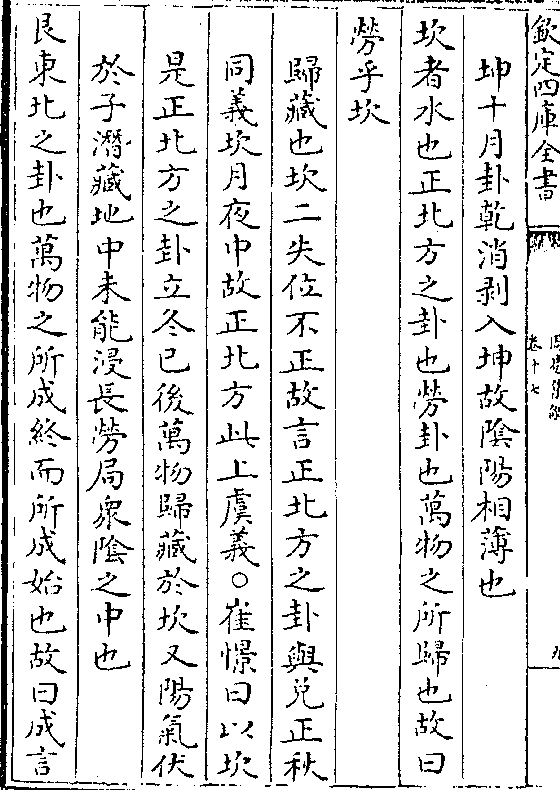 欽定四庫全書
卷十七
九
坤十月卦乾消剥入坤故隂陽相薄也
坎者水也正北方之卦也勞卦也萬物之所歸也故曰
勞乎坎
歸藏也坎二失位不正故言正北方之卦與兑正秋
同義坎月夜中故正北方此上虞義○崔憬曰以坎
是正北方之卦立冬已後萬物歸藏於坎又陽氣伏
於子潛藏地中未能浸長勞局衆隂之中也
艮東北之卦也萬物之所成終而所成始也故曰成言